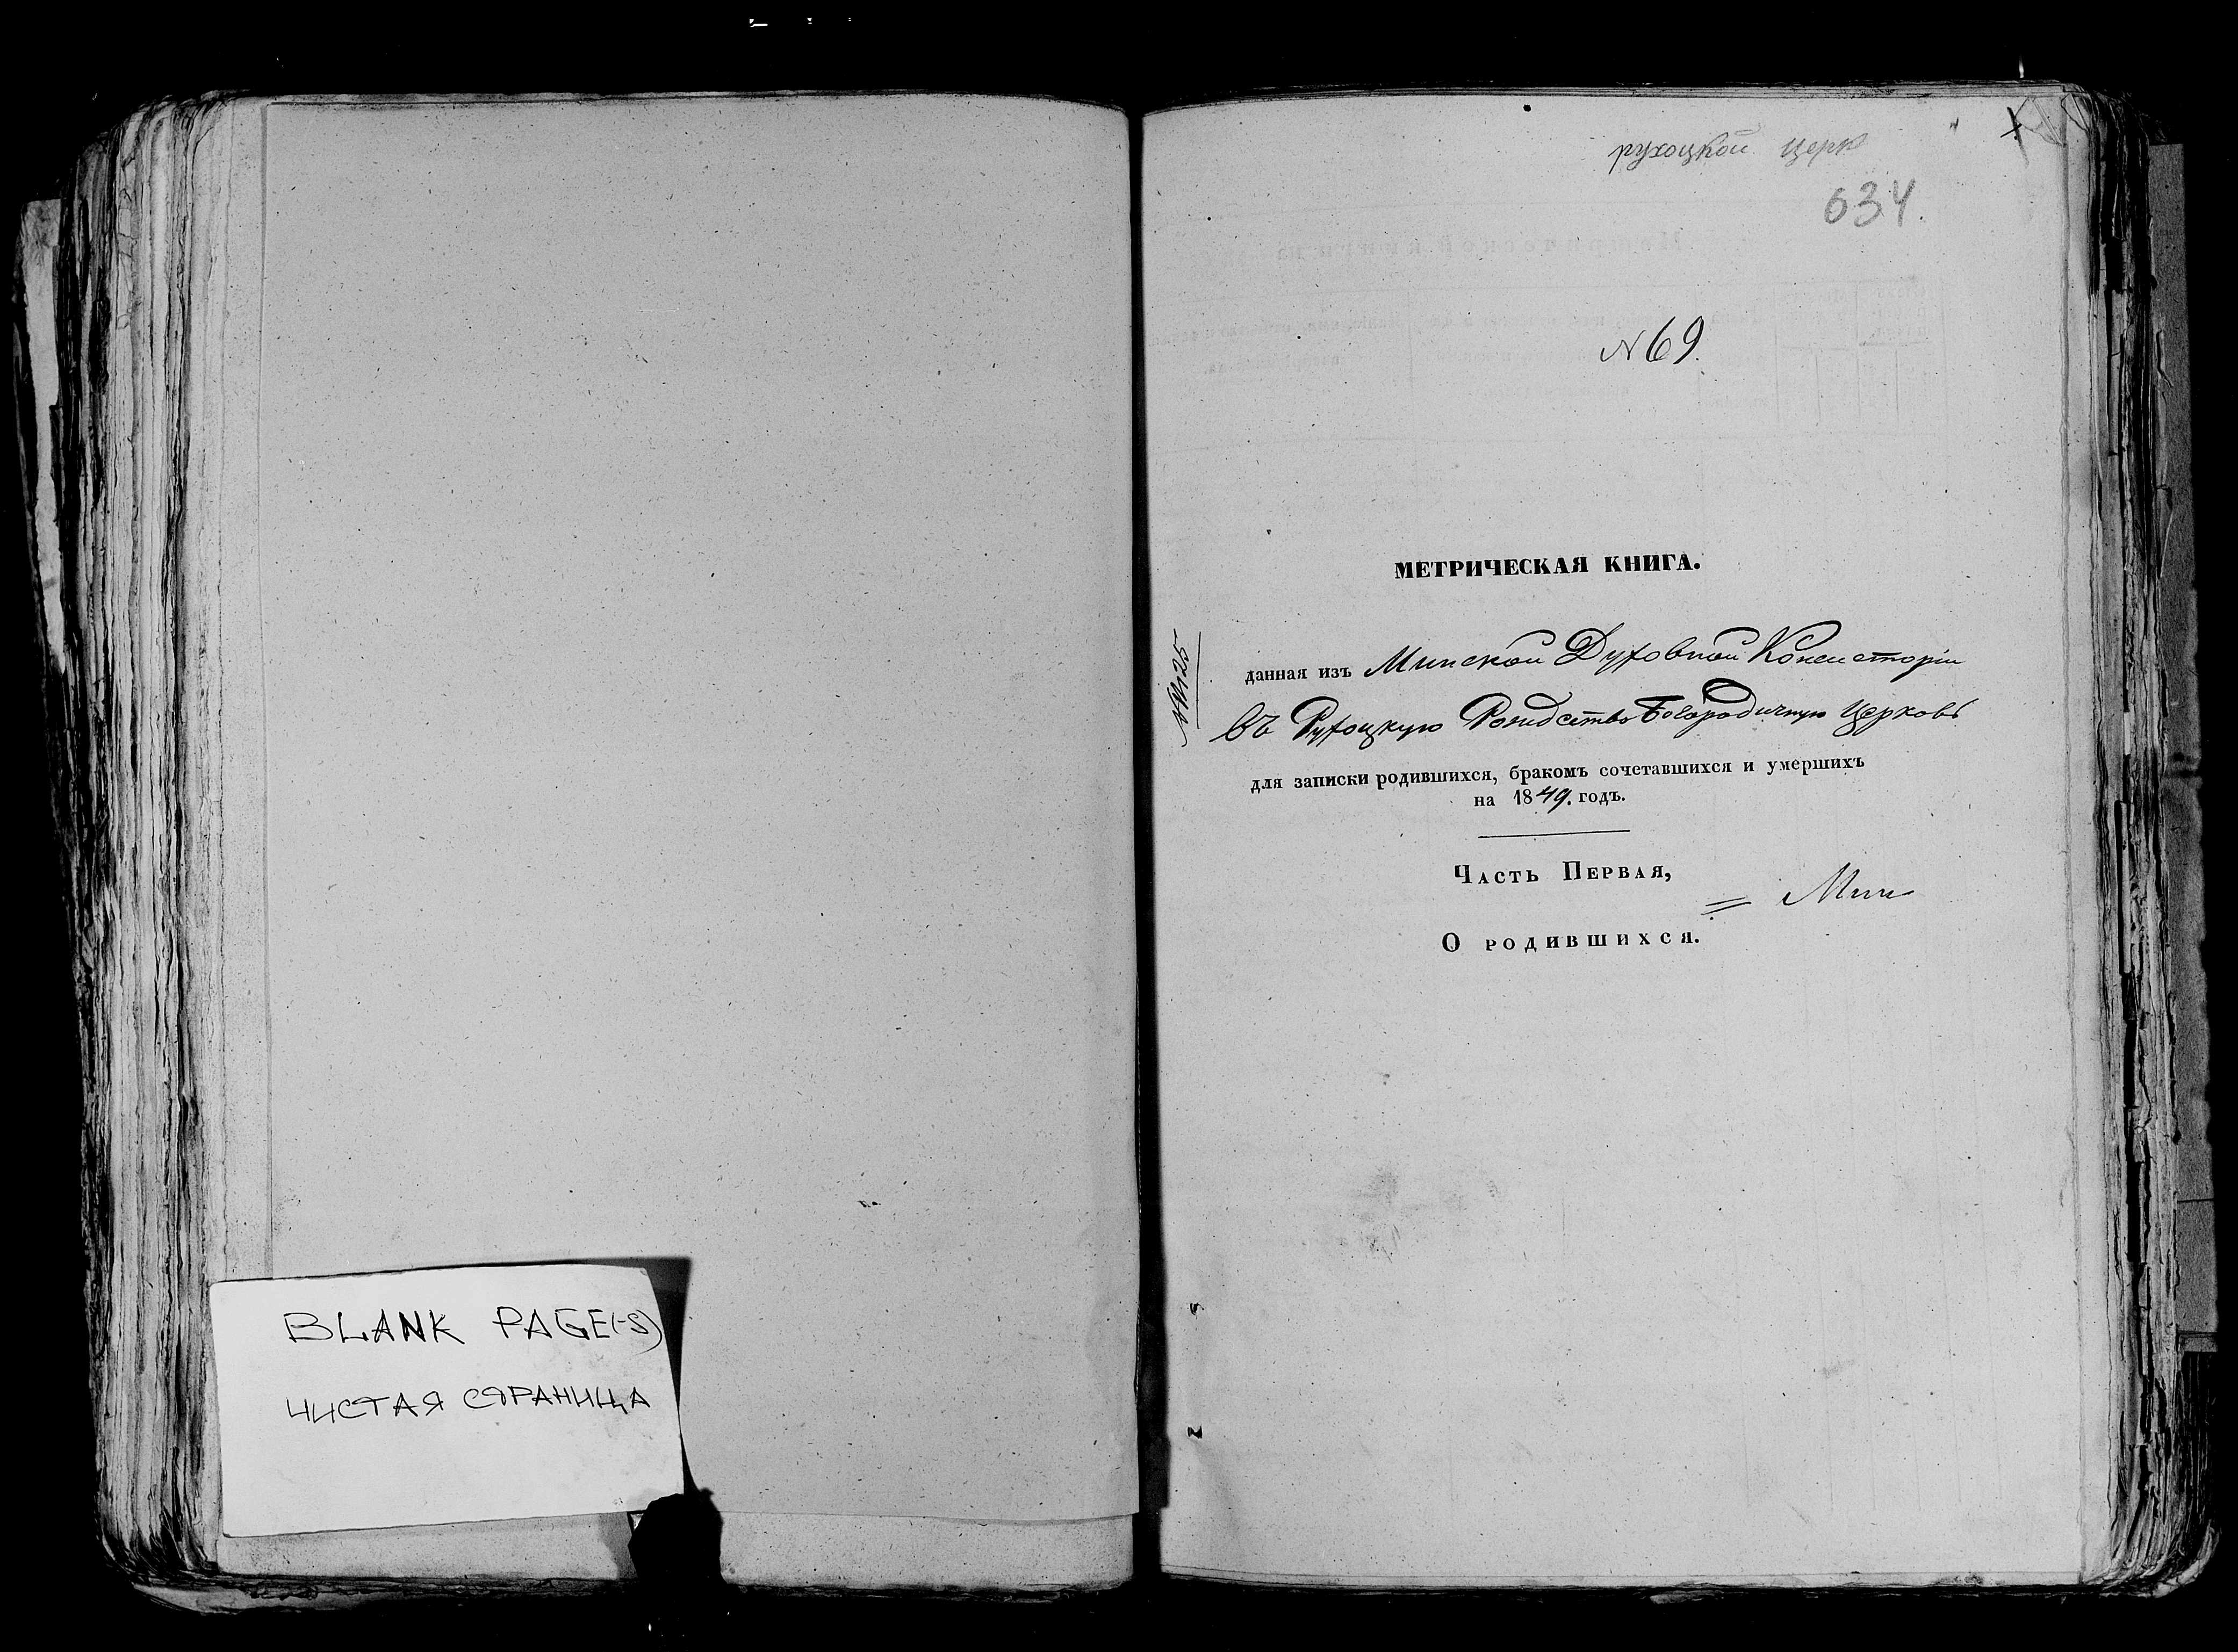 BLANK PAGE(-S)
ЧИСТАЯ СТРАНИЦА
рухоцкой церк
634.
№ 69.
МЕТРИЧЕСКАЯ КНИГА.
данная изъ Минской Духовной Консисторіи
въ Рухоцкую Рождество Богородичную Церковь
для записки родившихся, бракомъ сочетавшихся и умершихъ
на 1849. годъ.
Часть Первая,
О родившихся.